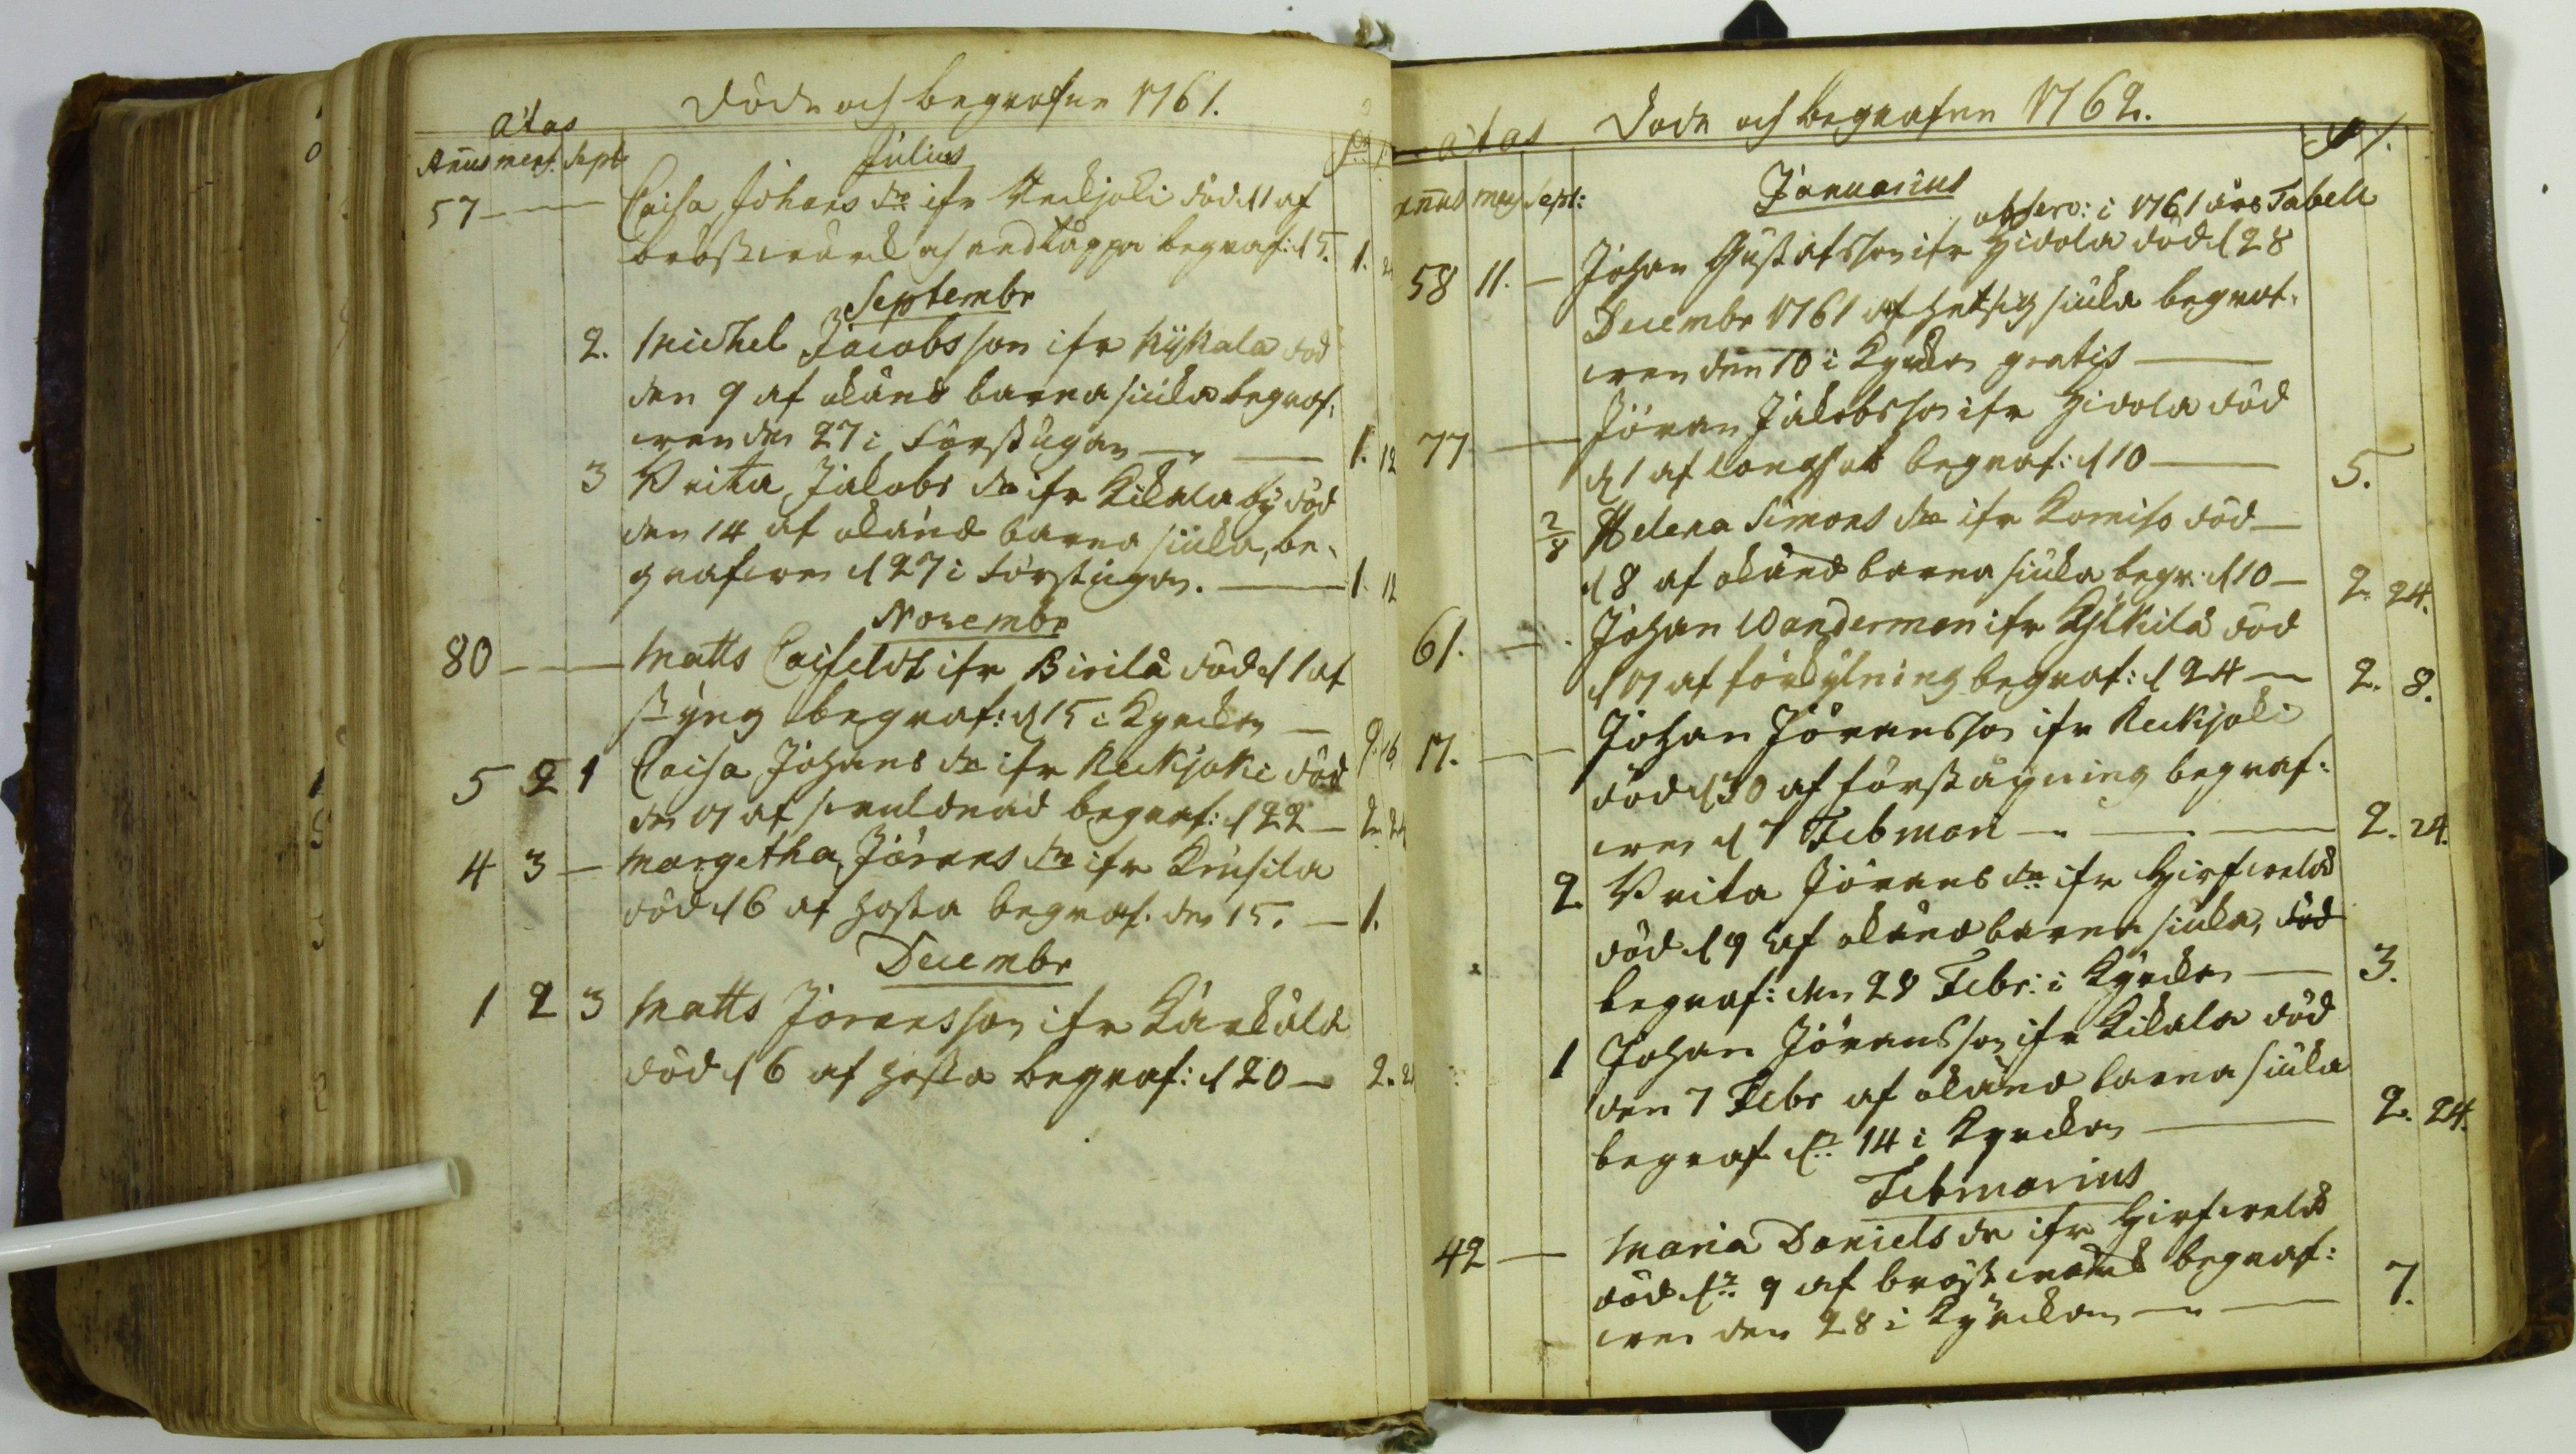 Döde och begrafne 1761.
ätas
Annus mens. sept.
Julius
57 — Caisa Johans dr ifr Reckjoki död d 1 af
bröstwärck och andtäppa begraf: d 15. 1.
Septembr
2. Michel Jacobsson ifr Kykala död
den 9 af okänd barna siuka begraf-
wen den 27 i Förstugan — 1. 12
3 Brita Jakobs dr ifr Kikala by död
den 14 af okänd barna siuka, be-
grafwen d 27 i förstugan. — 1. 12
Novembr
80 — Matts Caifeldt ifr Birilä död d 1 af
styng begraf: d 15 i Kyrckan — 9. 16
5 2 1 Caisa Johans dr ifr Reckjoki död
den 17 af swulднаd begraf: d 22 — 2. 24
4 3 — Margetha Jörans dr ifr Krusila
död d 6 af hosta begraf. den 15. — 1.
Decembr
1 2 3 Matts Jöransson ifr Kärckälä
död d 6 af hosta begraf: d 20 — 2.
Döde och begrafne 1762.
ätas
annus mens sept:
Januarius
observ: i 1761 års Tabell
58 11. — Johan Gustafsson ifr Hidola död d 28
Decembr 1761 af hetsig siuka begraf-
wen den 10 i Kyrckan gratis —
77 — Jöran Jakobsson ifr Hidola död
d 1 af långsot begraf: d 10 — 5.
2/8 Helena Simons dr ifr Komiso död —
d 8 af okänd barna siuka begr: d 10 — 2. 24.
61. — Johan Wanderman ifr död
d 17 af förkylning begraf: d 24 — 2. 8.
17. — Johan Jöransson ifr Reckjoki
död d 30 af förstäpning begraf-
wen d 7 Februari — 2. 24.
2. Brita Jörans dr ifr Hirfwelä
död d 9 af okänd barna siuka, död
begraf: den 28 Febr: i Kyrckan — 3.
1 Johan Jöransson ifr Kikala död
den 7 Febr af okänd barna siuka
begraf dn 14 i Kyrckan — 2. 24.
Februarius
42 — Maria Daniels dr ifr Hirfwelä
död dn 9 af bröstwärck begraf-
wen den 28 i Kyrckan — 7.